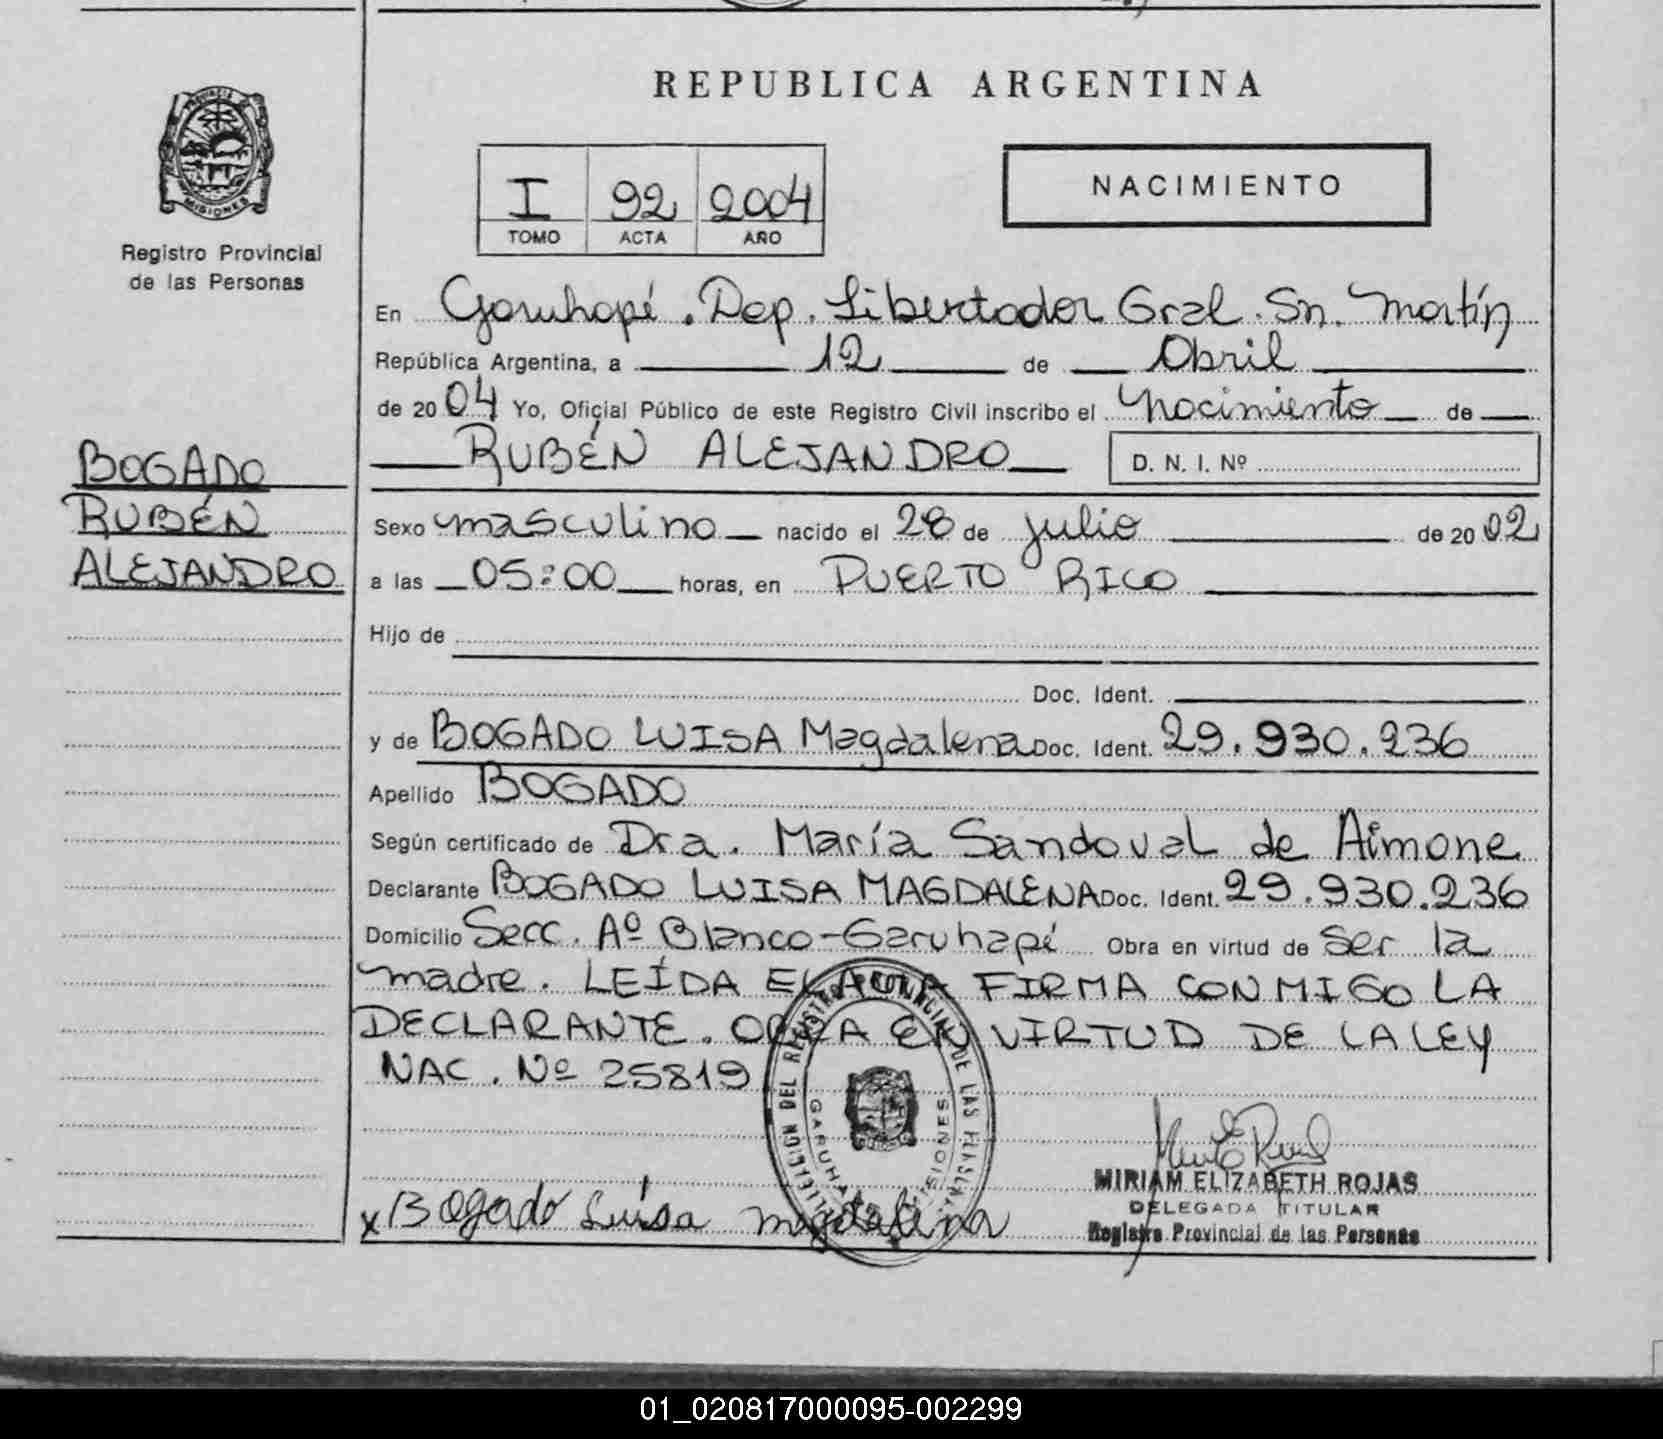 REPUBLICA ARGENTINA
PROVINCIA DE
MISIONES
Registro Provincial
de las Personas
I 92 2004
TOMO ACTA AÑO
NACIMIENTO
En Garuhapé. Dep. Libertador Gral. Sn. Martín
República Argentina, a 12 de Abril
de 2004 Yo, Oficial Público de este Registro Civil inscribo el nacimiento de
RUBÉN ALEJANDRO D. N. I. Nº
BOGADO
RUBÉN
ALEJANDRO
Sexo masculino nacido el 28 de julio de 2002
a las 05:00 horas, en PUERTO RICO
Hijo de
Doc. Ident.
y de BOGADO LUISA Magdalena Doc. Ident. 29.930.236
Apellido BOGADO
Según certificado de Dra. María Sandoval de Aimone
Declarante BOGADO LUISA MAGDALENA Doc. Ident. 29.930.236
Domicilio Secc. Aº Blanco-Garuhapé Obra en virtud de ser la
madre. LEÍDA EL ACTA FIRMA CONMIGO LA
DECLARANTE. OBRA EN VIRTUD DE LA LEY
NAC. Nº 25819
DEL REGISTRO PROVINCIAL DE LAS PERSONAS
GARUHAPÉ MISIONES
x Bogado Luisa magdalena
MIRIAM ELIZABETH ROJAS
DELEGADA TITULAR
Registro Provincial de las Personas
01_020817000095-002299